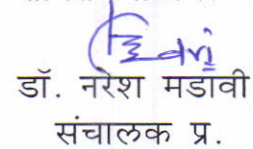 डॉ. नरेश मडावी
संचालक प्र.